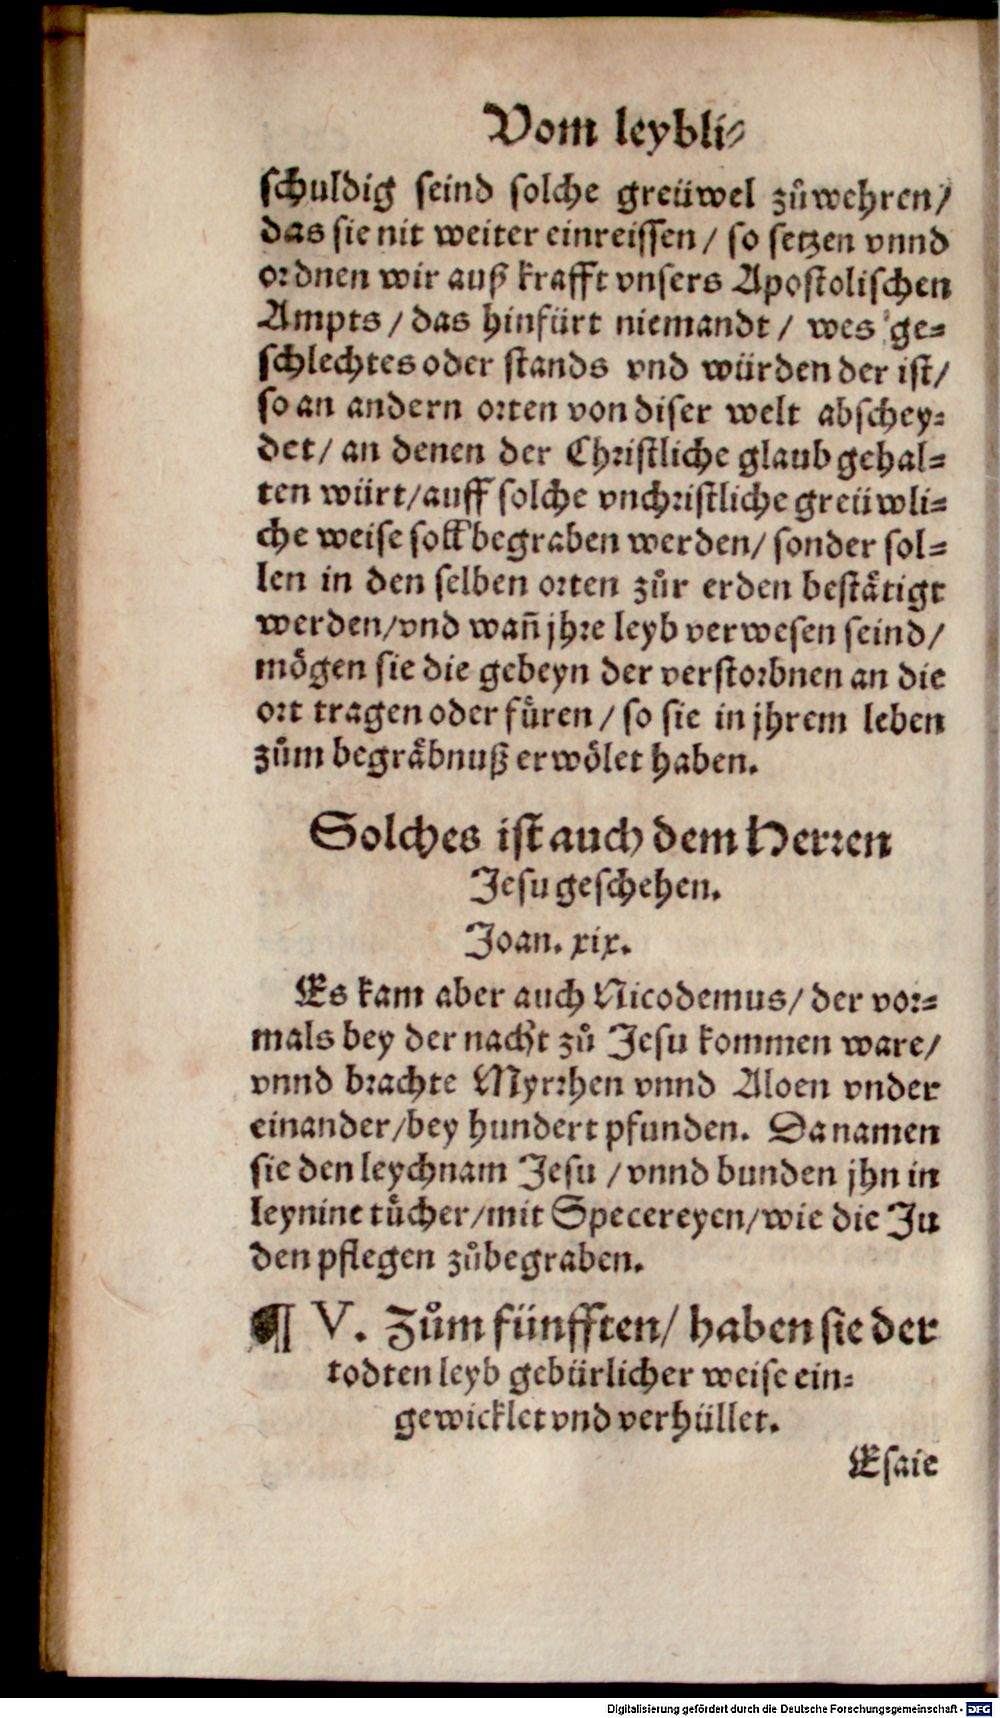 Vom leybli⸗
schuldig seind solche greüwel zůwehren/
das sie nit weiter einreissen / so setzen vnnd
ordnen wir auß krafft vnsers Apostolischen
Ampts / das hinfürt niemandt / wes ge⸗
schlechtes oder stands vnd würden der ist/
so an andern orten von diser welt abschey⸗
det/ an denen der Christliche glaub gehal⸗
ten würt/auff solche vnchristliche greüwli⸗
che weise soll begraben werden/ sonder sol⸗
len in den selben orten zůr erden bestaͤtigt
werden/vnd wañ jhre leyb verwesen seind/
moͤgen sie die gebeyn der verstorbnen an die
ort tragen oder fuͤren / so sie in jhrem leben
zům begraͤbnuß erwoͤlet haben.
Solches ist auch dem Herren
Jesu geschehen.
Joan. xix.
Es kam aber auch Nicodemus/ der vor⸗
mals bey der nacht zů Jesu kommen ware/
vnnd brachte Myrrhen vnnd Aloen vnder
einander/bey hundert pfunden. Da namen
sie den leychnam Jesu / vnnd bunden jhn in
leynine tuͤcher/mit Specereyen/wie die Ju
den pflegen zůbegraben.
¶ V. Zům fünfften/ haben sie der
todten leyb gebürlicher weise ein⸗
gewicklet vnd verhüllet.
Esaie
Digitalisierung gefördert durch die Deutsche Forschungsgemeinschaft - DFG